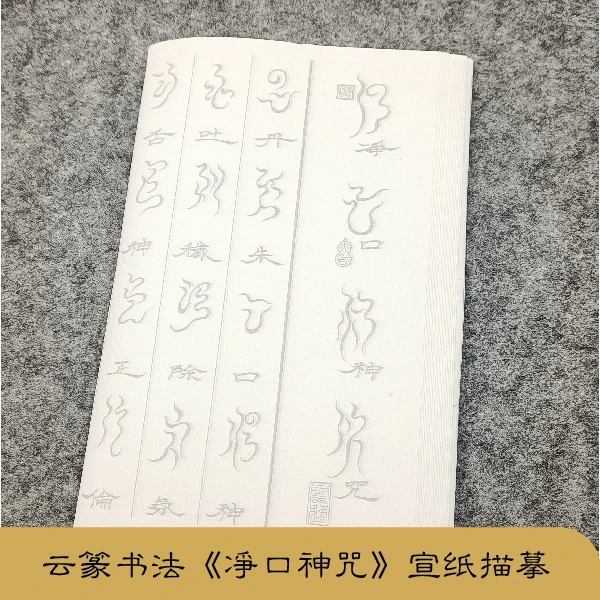 淨口神咒
丹朱口神
吐穢除氛
舌神正倫
云篆书法《凈口神咒》宣纸描摹